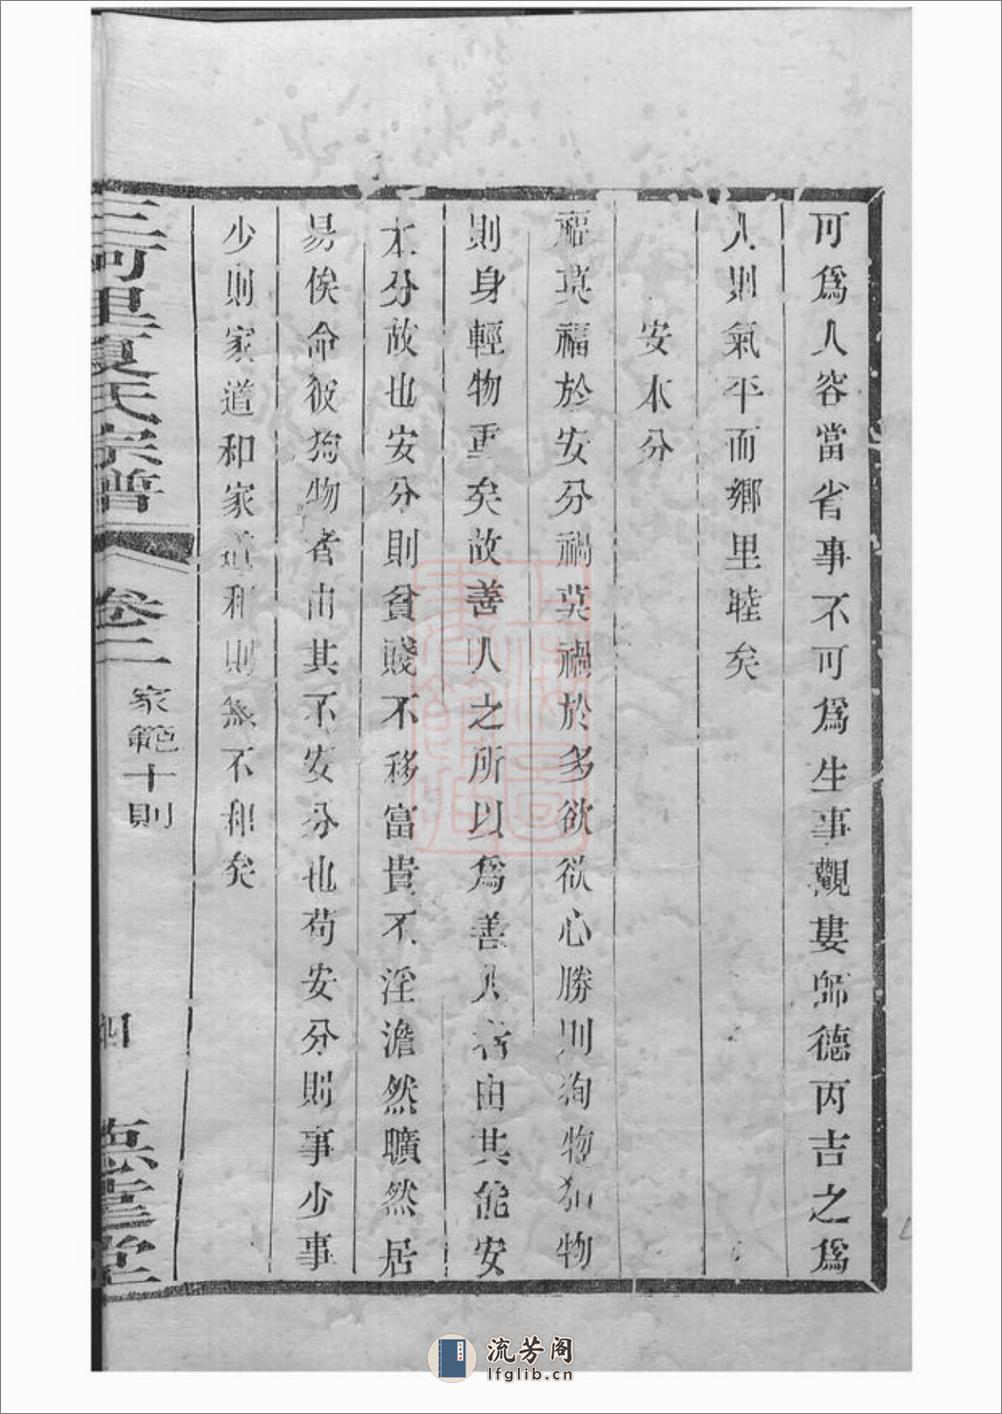 可為人容當省事不可為生事觀婁師德丙吉之為
人則氣平而鄉里睦矣
安本分
福莫福於安分禍莫禍於多欲欲心勝則狥物狥物
則身輕物重矣故善人之所以為善人者由其能安
本分故也安分則貧賤不移富貴不淫澹然曠然居
易俟命彼狥物者由其不安分也苟安分則事少事
少則家道和家道和則無不和矣
三河里夏氏宗譜
卷二
家範十則
四
堂
流芳阁
lfglib.cn